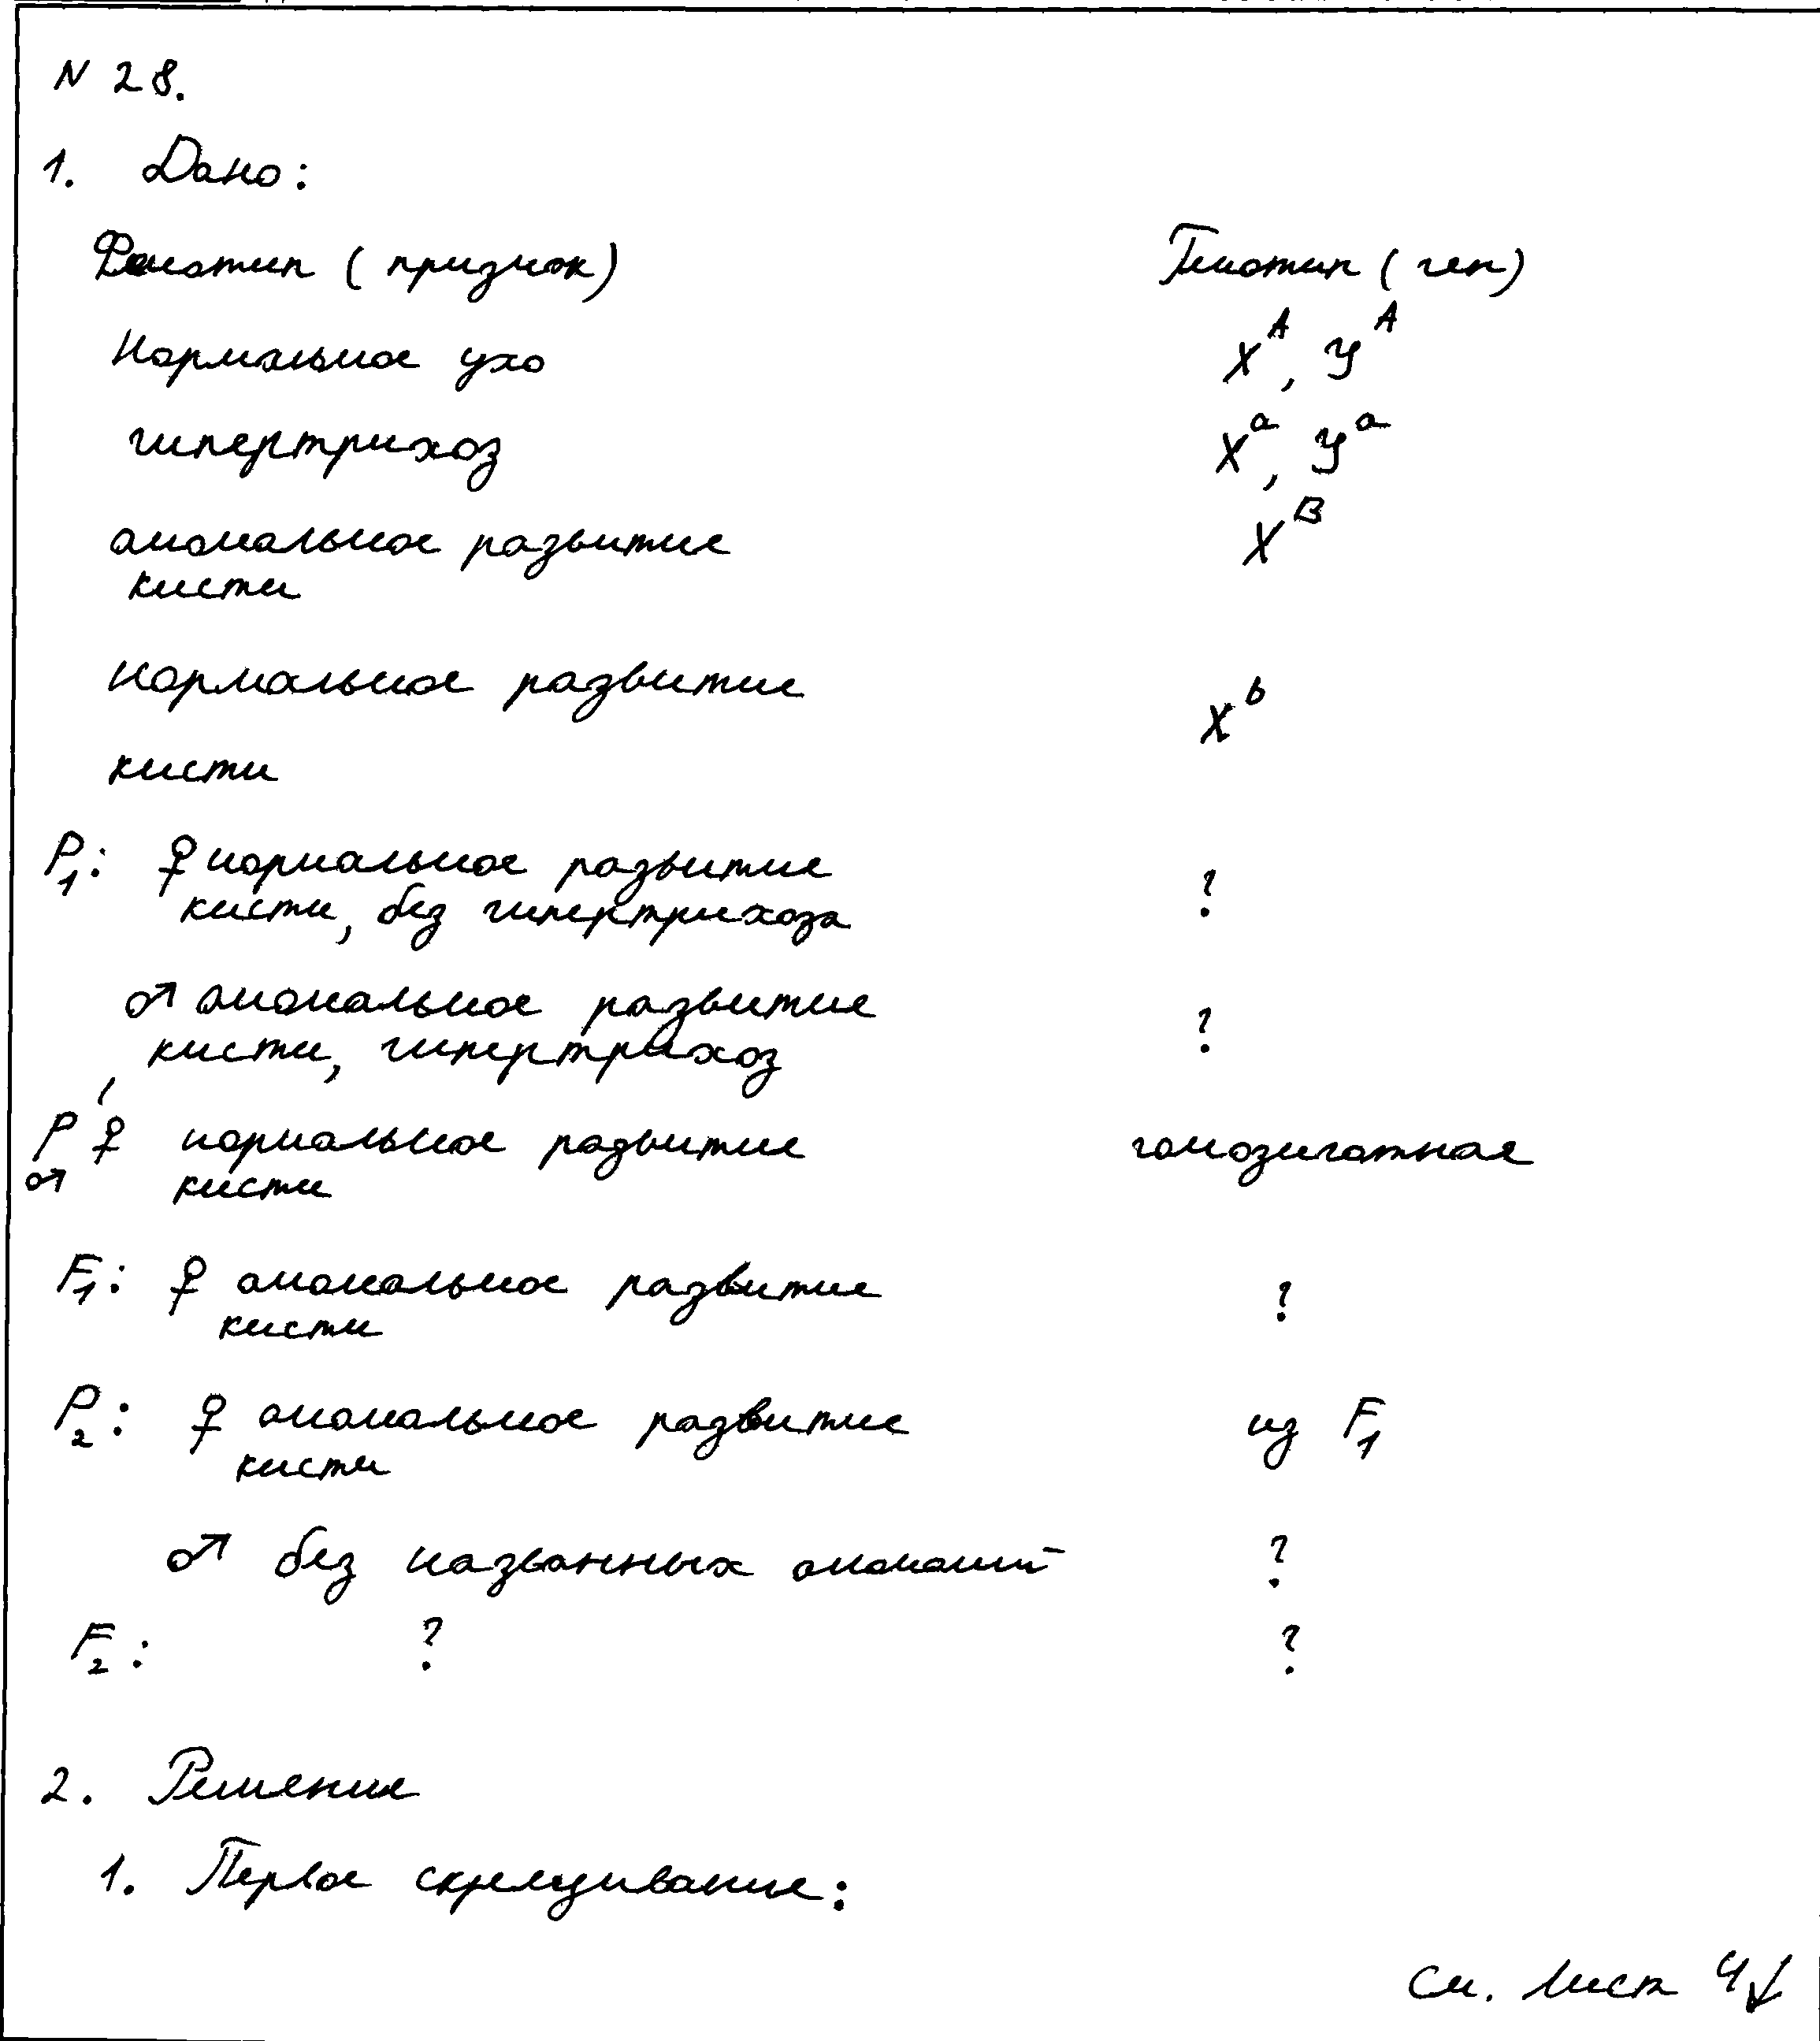 N 28.
1. Дано:
Фенотип (признак) Генотип (ген)
Нормальное ухо X^A, Y^A
гипертрихоз X^a, Y^a
аномальное развитие X^B
кисти
нормальное развитие X^b
кисти
P₁: ♀ нормальное развитие ?
кисти, без гипертрихоза
♂ аномальное развитие ?
кисти, гипертрихоз
P ♀' нормальное развитие гомозиготная
♂ кисти
F₁: ♀ аномальное развитие ?
кисти
P₂: ♀ аномальное развитие из F₁
кисти
♂ без названных аномалий ?
F₂: ? ?
2. Решение
1. Первое скрещивание:
См. лист 4↓